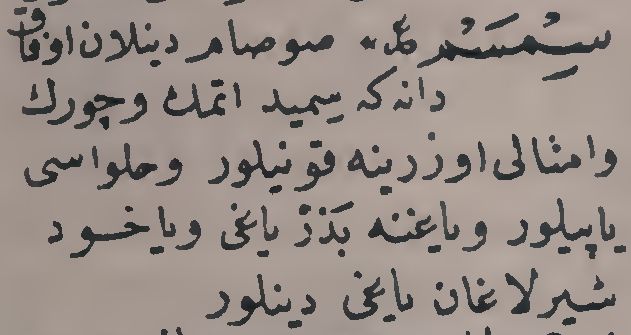 سِمْسَمْ ع صوصام دینلان اوفاق
دانه که سمید اتمك وچورك
وامثالی اوزرینه قونیلور وحلواسی
یاپیلور ویاغنه بَذَرْ یاغی ویاخود
شیرلاغان یاغی دینلور